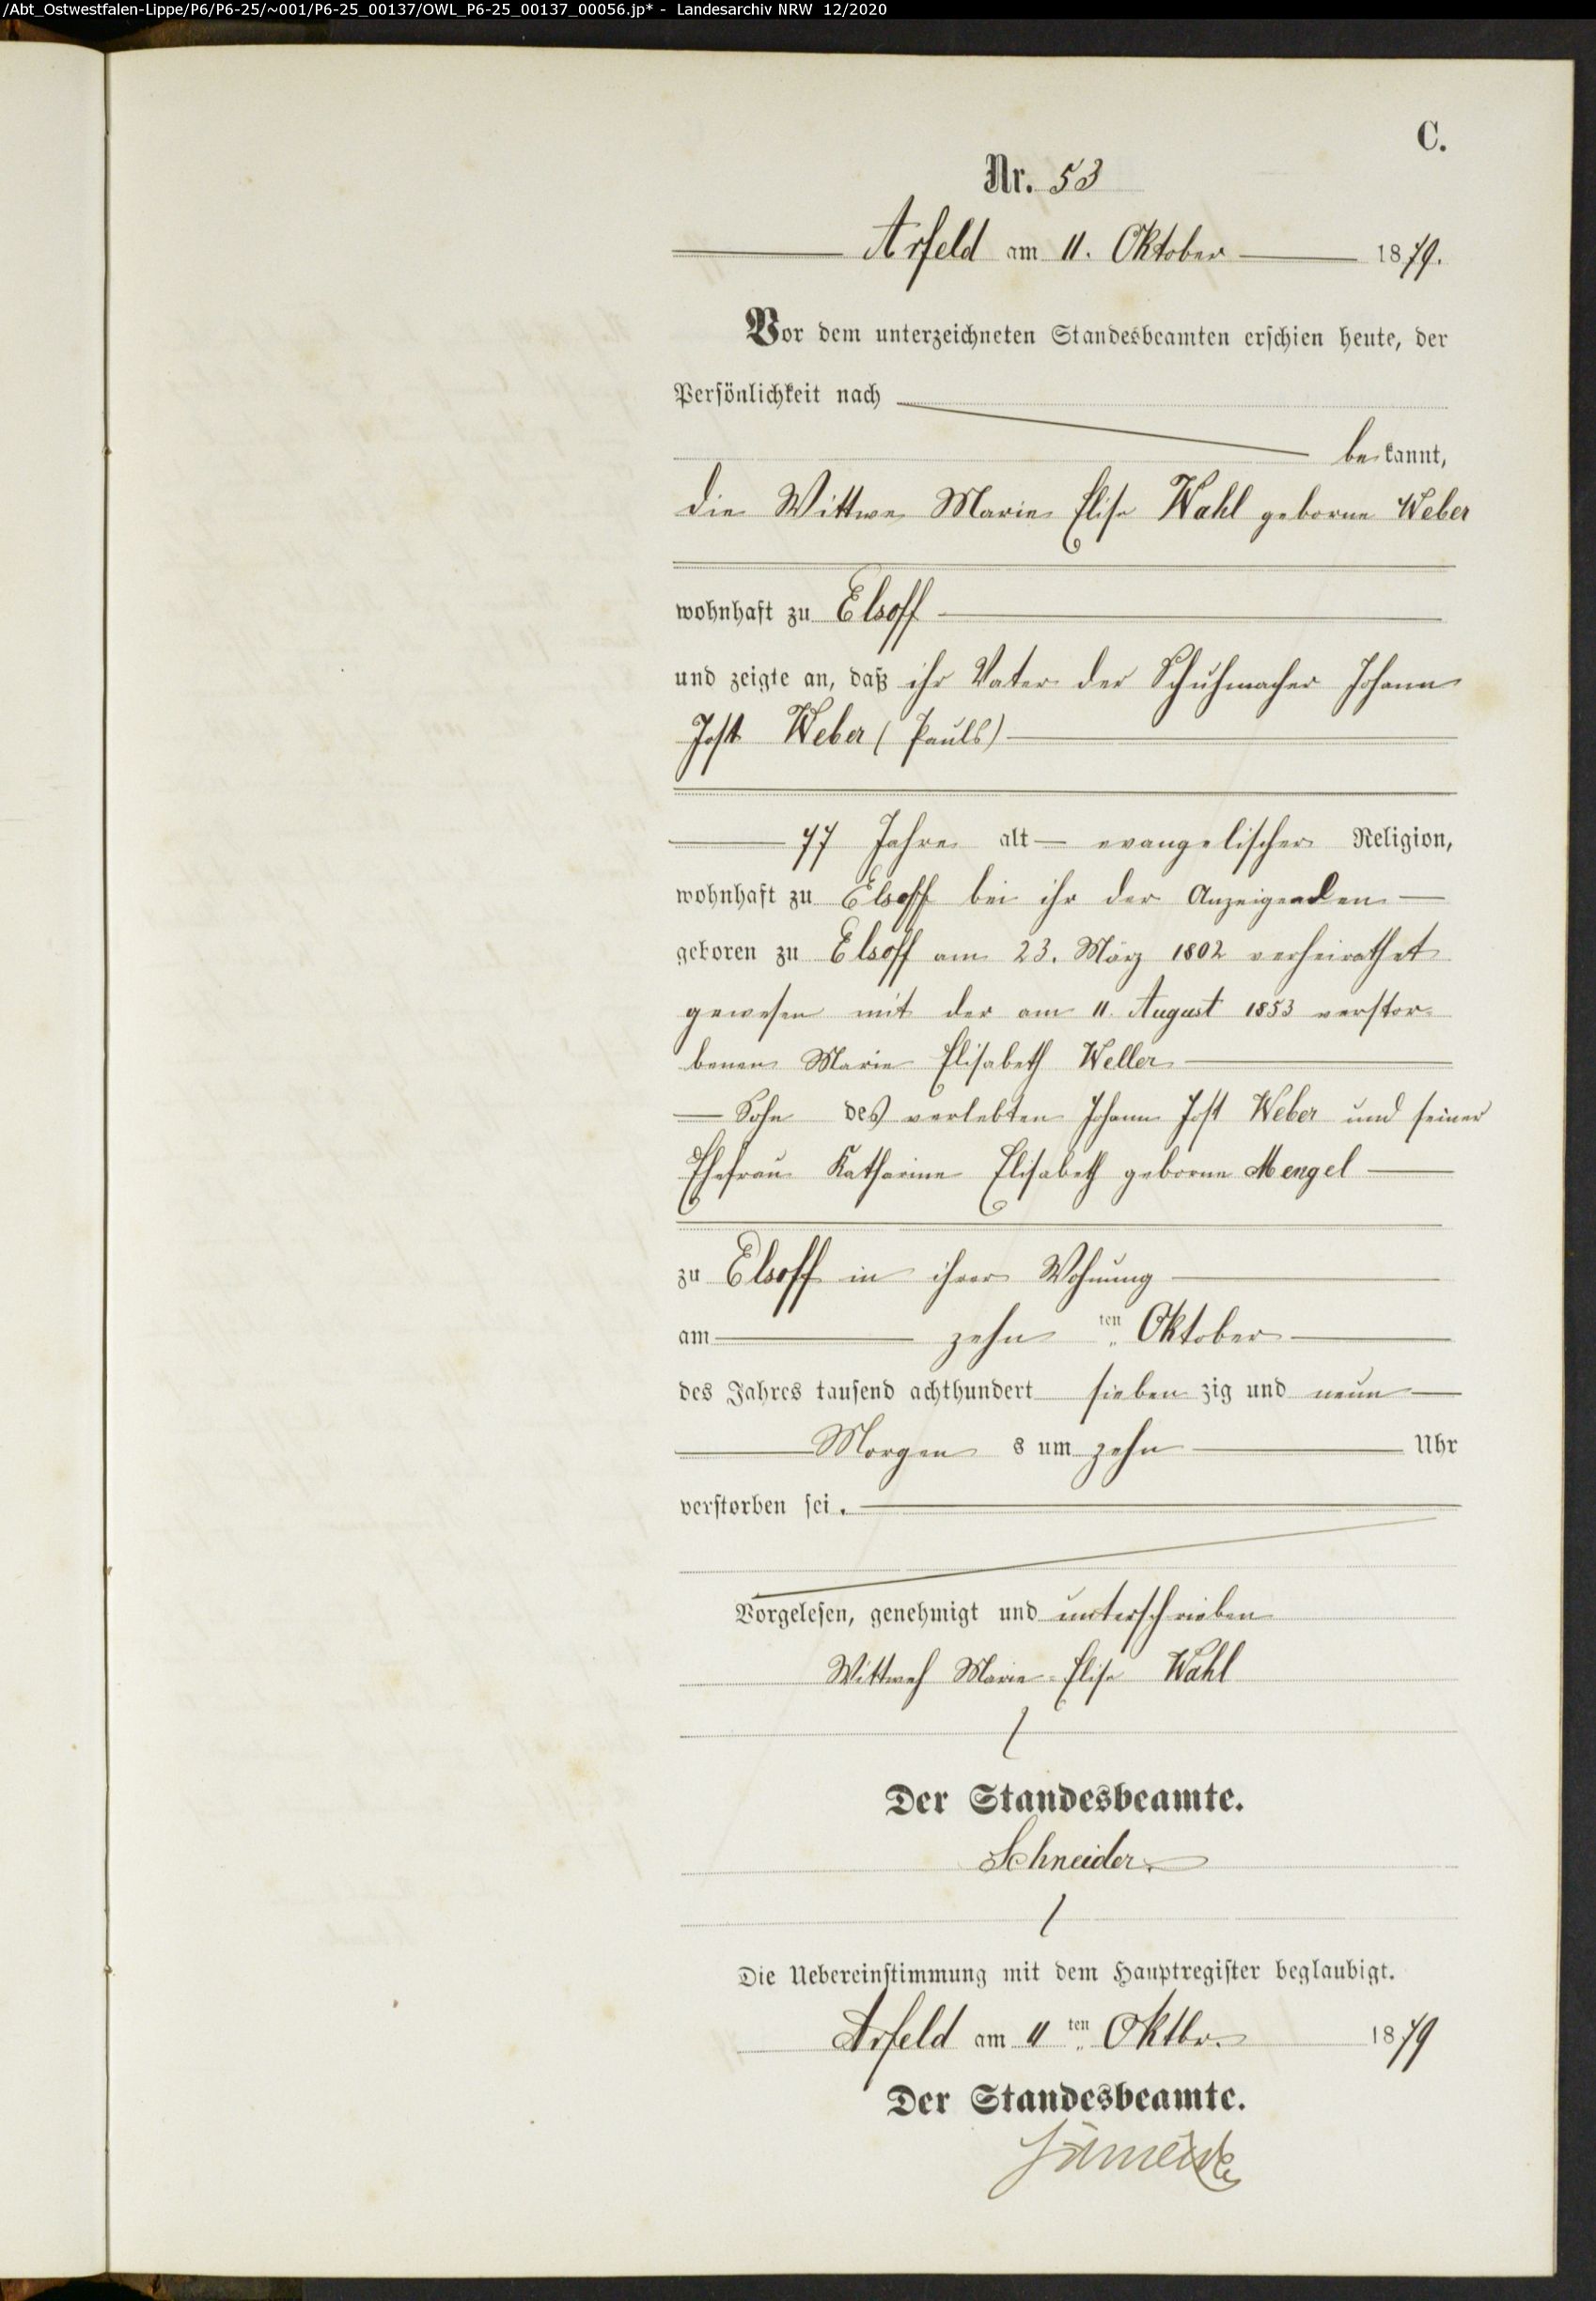 /Abt_Ostwestfalen-Lippe/P6/P6-25/~001/P6-25_00137/OWL_P6-25_00137_00056.jp* - Landesarchiv NRW 12/2020
C.
Nr. 53
Arfeld am 11. Oktober 1879.
Vor dem unterzeichneten Standesbeamten erschien heute, der
Persönlichkeit nach
bekannt,
die Wittwe Marie Elise Wahl geborne Weber
wohnhaft zu Elsoff
und zeigte an, daß ihr Vater der Schuhmacher Johann
Jost Weber (Pauls)
77 Jahre alt evangelischer Religion,
wohnhaft zu Elsoff bei ihr der Anzeigenden
geboren zu Elsoff am 23. März 1802 verheirathet
gewesen mit der am 11. August 1853 verstor-
benen Marie Elisabeth Weller
Sohn des verlebten Johann Jost Weber und seiner
Ehefrau Katharine Elisabeth geborne Mengel
zu Elsoff in ihrer Wohnung
am zehn ten Oktober
des Jahres tausend achthundert siebenzig und neun
Morgens um zehn Uhr
verstorben sei.
Vorgelesen, genehmigt und unterschrieben
Wittweh Marie Elise Wahl
Der Standesbeamte.
Schneider.
Die Uebereinstimmung mit dem Hauptregister beglaubigt.
Arfeld am 11ten Oktbr. 1879
Der Standesbeamte.
Schneider